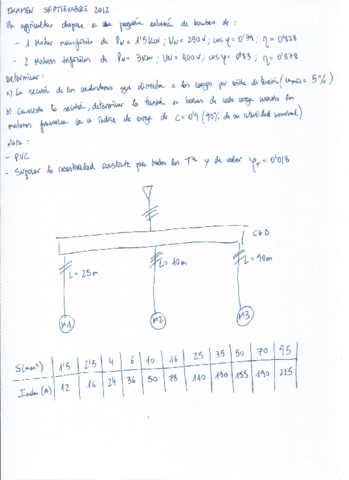 EXAMEN SEPTIEMBRE 2012
Un agricultor dispone en una pequeña estación de bombeo de:
- 1 Motor monofásico de PN = 1'5 KW; UN = 230 V; cos φ = 0'79; η = 0'828
- 2 Motores trifásicos de PN = 3KW; UN = 400 V; cos φ = 0'83; η = 0'878
Determinar:
a) La sección de los conductores que alimentan a las cargas por caída de tensión (umáx = 5%)
b) Conocida la sección, determinar la tensión en bornas de cada carga cuando los
motores funcionan con un índice de carga de C = 0'9 (90% de su intensidad nominal)
Nota:
- PVC
- Suponer la resistividad constante para todas las Tª y de valor ρT = 0'018
CGD
L = 25m
L = 40m
L = 90m
M1
M2
M3
S(mm²) 1'5 2'5 4 6 10 16 25 35 50 70 95
(A) 12 16 24 36 50 78 110 130 155 190 225